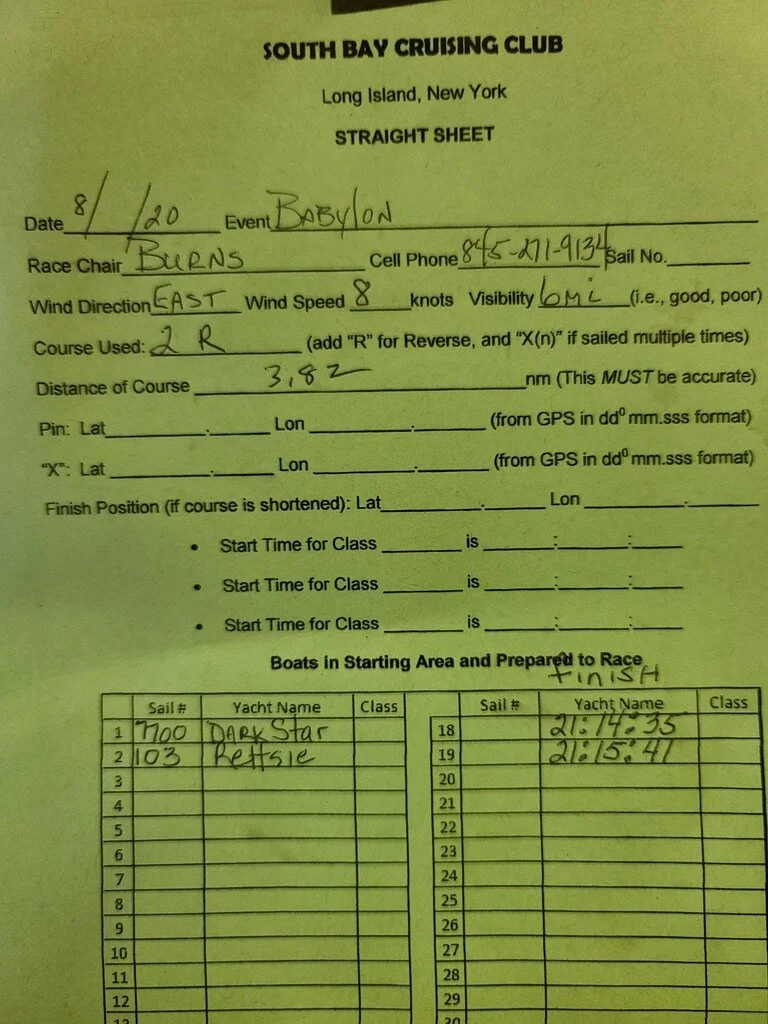 SOUTH BAY CRUISING CLUB
Long Island, New York
STRAIGHT SHEET
Date 8/ /20 Event BABYLON
Race Chair BURNS Cell Phone 845-271-9134 Sail No.
Wind Direction EAST Wind Speed 8 knots Visibility 6mi (i.e., good, poor)
Course Used: 2 R (add "R" for Reverse, and "X(n)" if sailed multiple times)
Distance of Course 3.82 nm (This MUST be accurate)
Pin: Lat . Lon . (from GPS in dd⁰ mm.sss format)
"X": Lat . Lon . (from GPS in dd⁰ mm.sss format)
Finish Position (if course is shortened): Lat . Lon .
• Start Time for Class is : :
• Start Time for Class is : :
• Start Time for Class is : :
Boats in Starting Area and Prepared to Race
FINISH
Sail # Yacht Name Class Sail # Yacht Name Class
1 7700 DARK Star 18 21:14:35
2 103 19 21:15:41
3 20
4 21
5 22
6 23
7 24
8 25
9 26
10 27
11 28
12 29
13 30